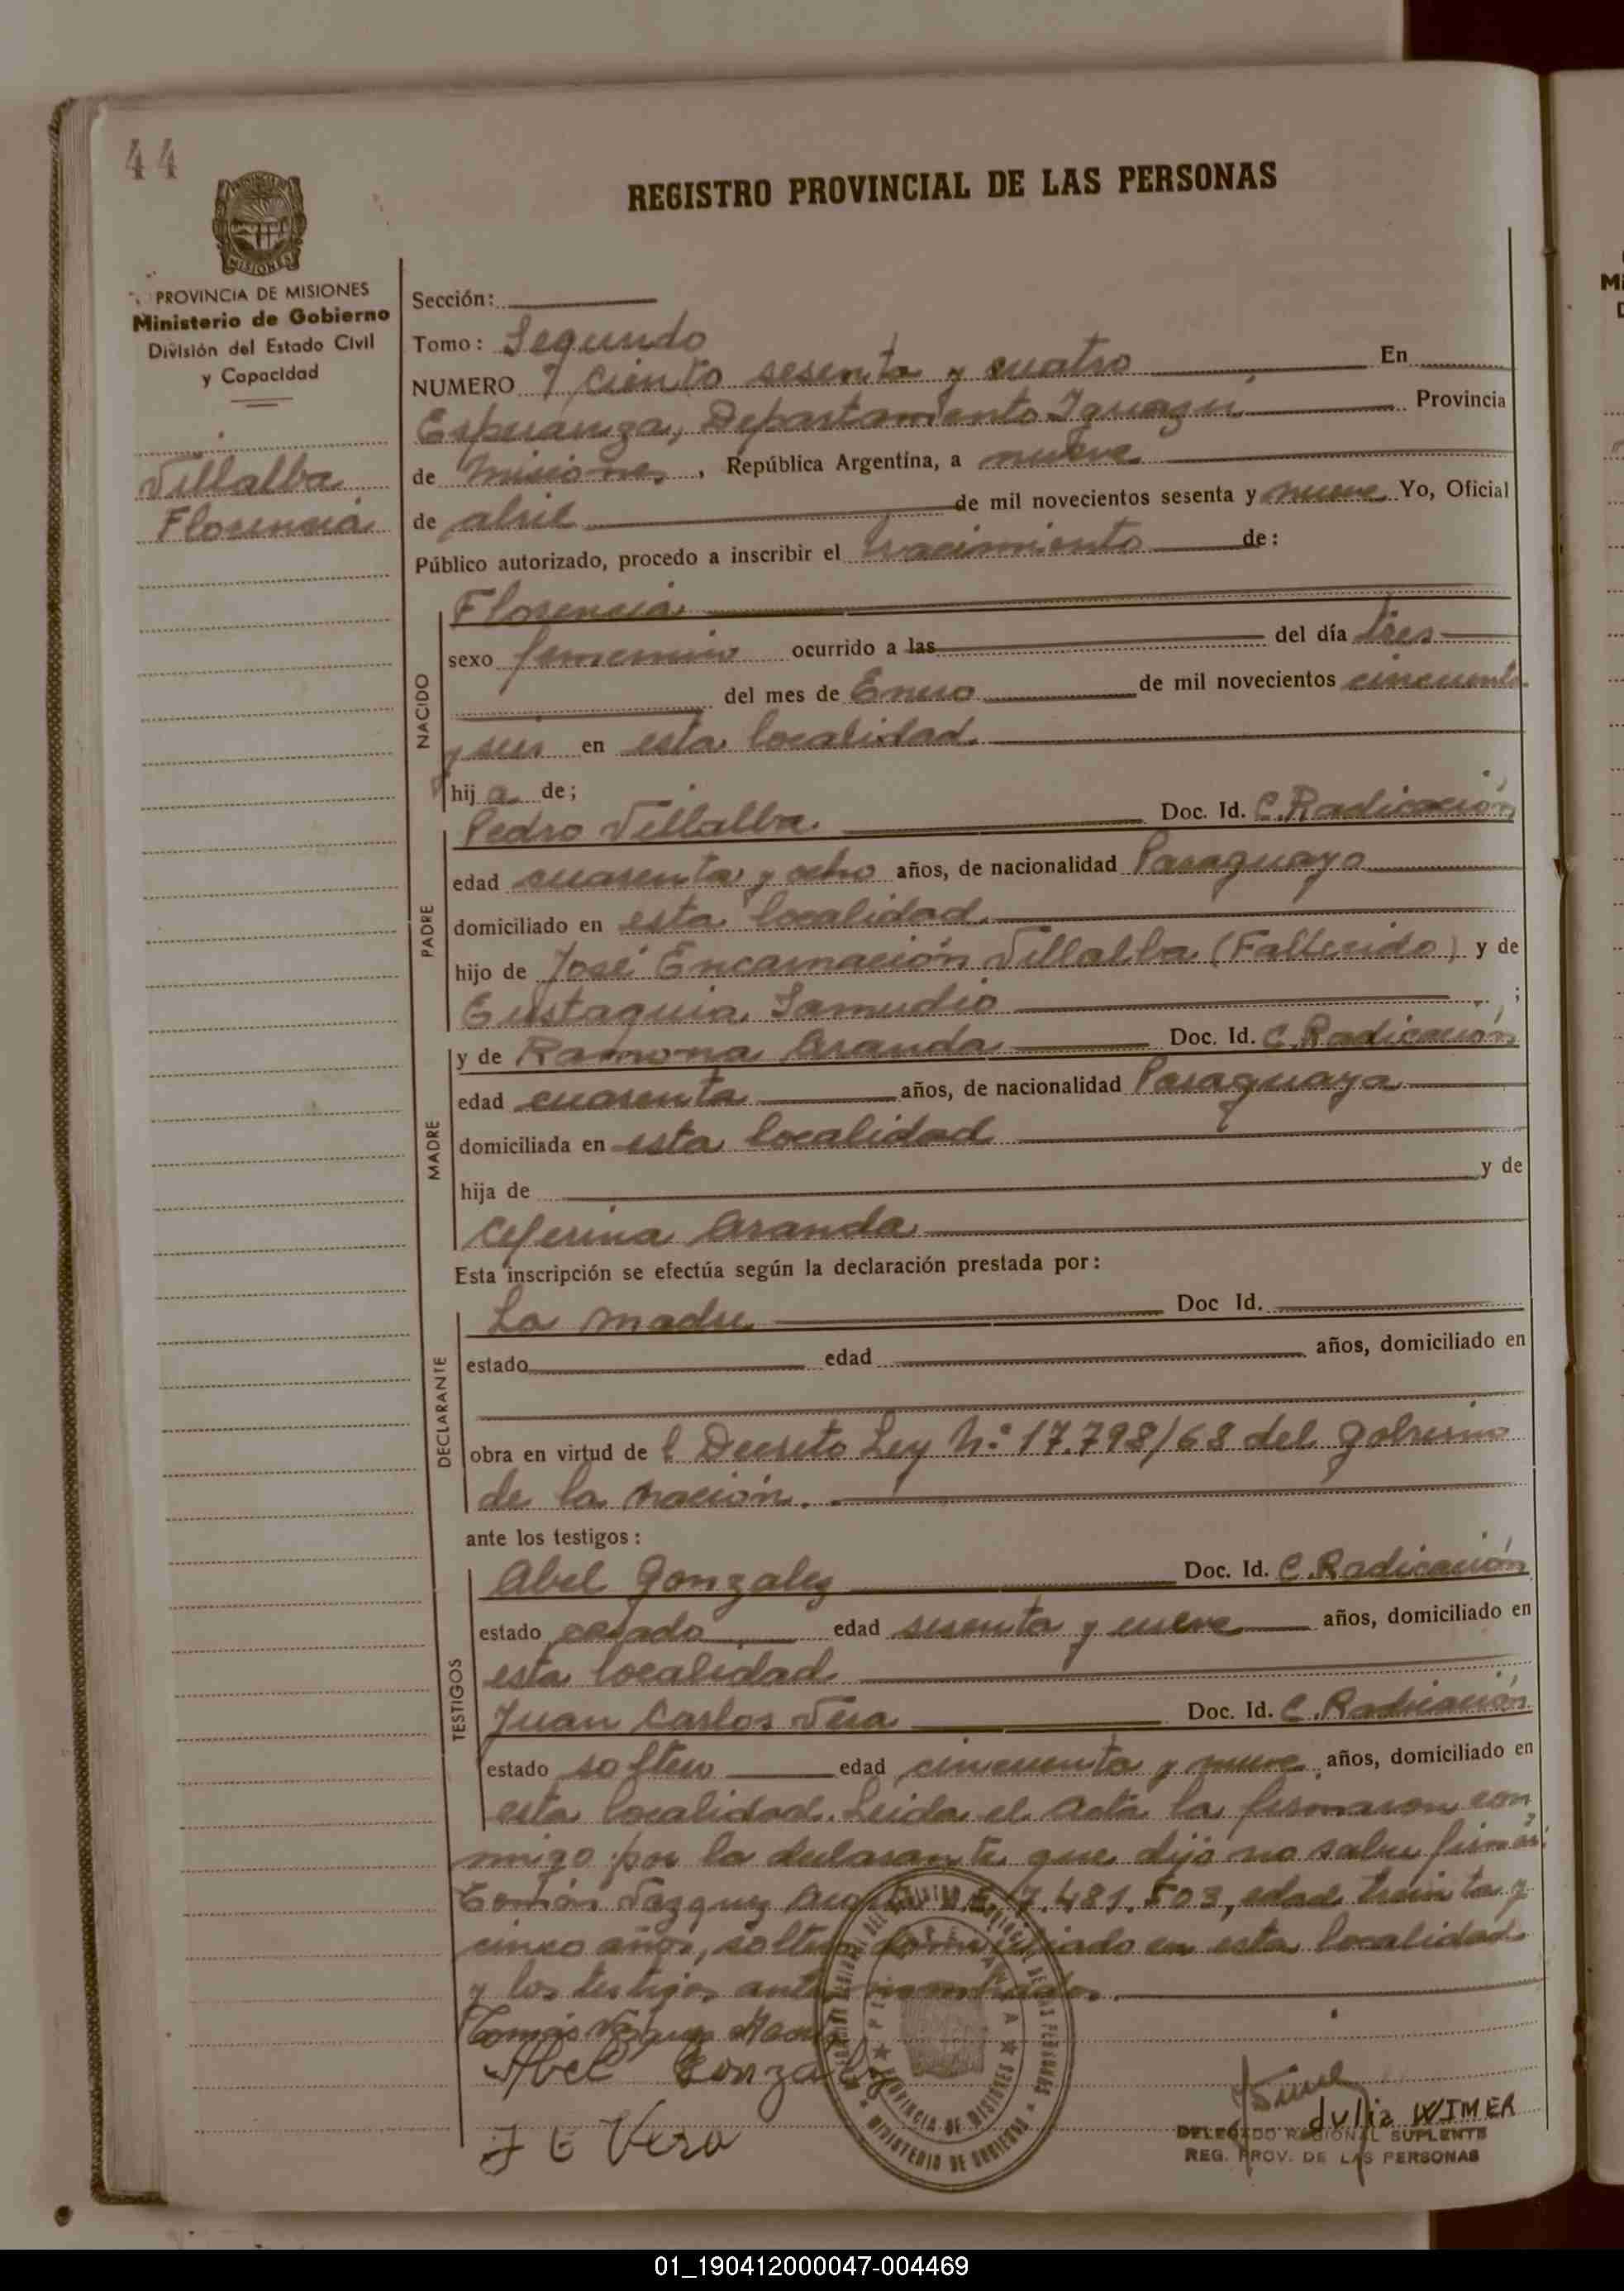 44
REGISTRO PROVINCIAL DE LAS PERSONAS
MISIONES
PROVINCIA DE MISIONES
Ministerio de Gobierno
División del Estado Civil
y Capacidad
Villalba
Florencia
Sección:
Tomo: Segundo
NUMERO Ciento sesenta y cuatro En
Esperanza, Departamento Iguazú Provincia
de Misiones, República Argentina, a nueve
de abril de mil novecientos sesenta y nueve Yo, Oficial
Público autorizado, procedo a inscribir el nacimiento de:
NACIDO
Florencia
sexo femenino ocurrido a las del día tres
del mes de Enero de mil novecientos cincuenta
y seis en esta localidad.
hija de;
PADRE
Pedro Villalba Doc. Id. C. Radicación
edad cuarenta y ocho años, de nacionalidad Paraguayo
domiciliado en esta localidad.
hijo de José Encarnación Villalba (Fallecido) y de
Eustaquia Samudio ;
MADRE
y de Ramona Aranda Doc. Id. C. Radicación
edad cuarenta años, de nacionalidad Paraguaya
domiciliada en esta localidad
hija de y de
Ceferina Aranda
Esta inscripción se efectúa según la declaración prestada por:
DECLARANTE
La madre Doc Id.
estado edad años, domiciliado en
obra en virtud de l Decreto Ley Nº 17.798/68 del Gobierno
de la Nación.
ante los testigos:
TESTIGOS
Abel Gonzalez Doc. Id. C. Radicación
estado casado edad sesenta y nueve años, domiciliado en
esta localidad
Juan Carlos Vera Doc. Id. C. Radicación
estado soltero edad cincuenta y nueve años, domiciliado en
esta localidad. Leida el Acta la firmaron con
migo por la declarante que dijo no saber firmar
Tomás Vazquez 7.481.503, edad treinta y
cinco años, soltero domiciliado en esta localidad
y los testigos antes nombrados.
Tomás Vázquez
Abel Gonzalez
J C Vera
ESPERANZA
PROVINCIA DE MISIONES
MINISTERIO DE GOBIERNO
Julia WIMER
DELEGADO REGIONAL SUPLENTE
REG. PROV. DE LAS PERSONAS
01_190412000047-004469